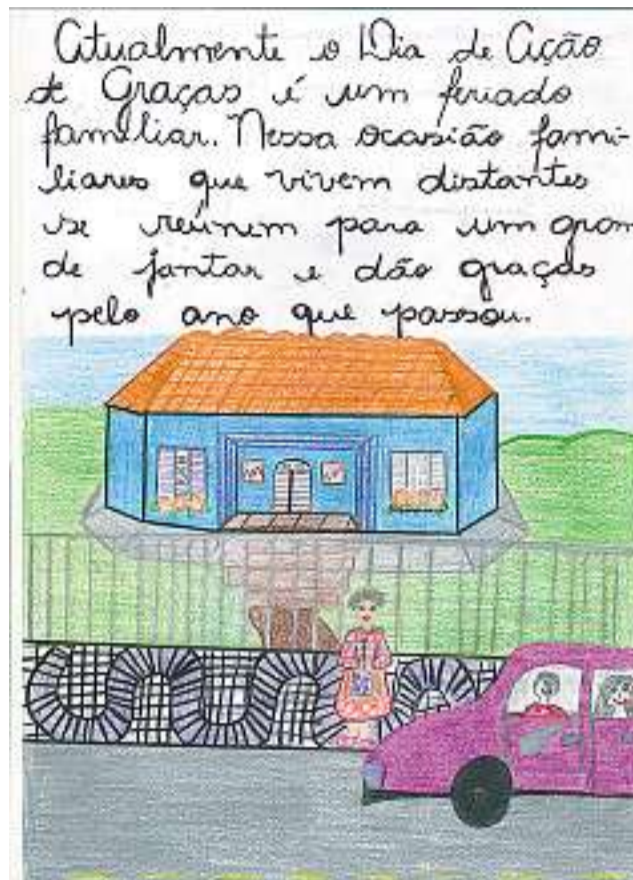 Atualmente o Dia de Ação
de Graças é um feriado
familiar. Nessa ocasião fami-
liares que vivem distantes
se reúnem para um gran
de jantar e dão graças
pelo ano que passou.